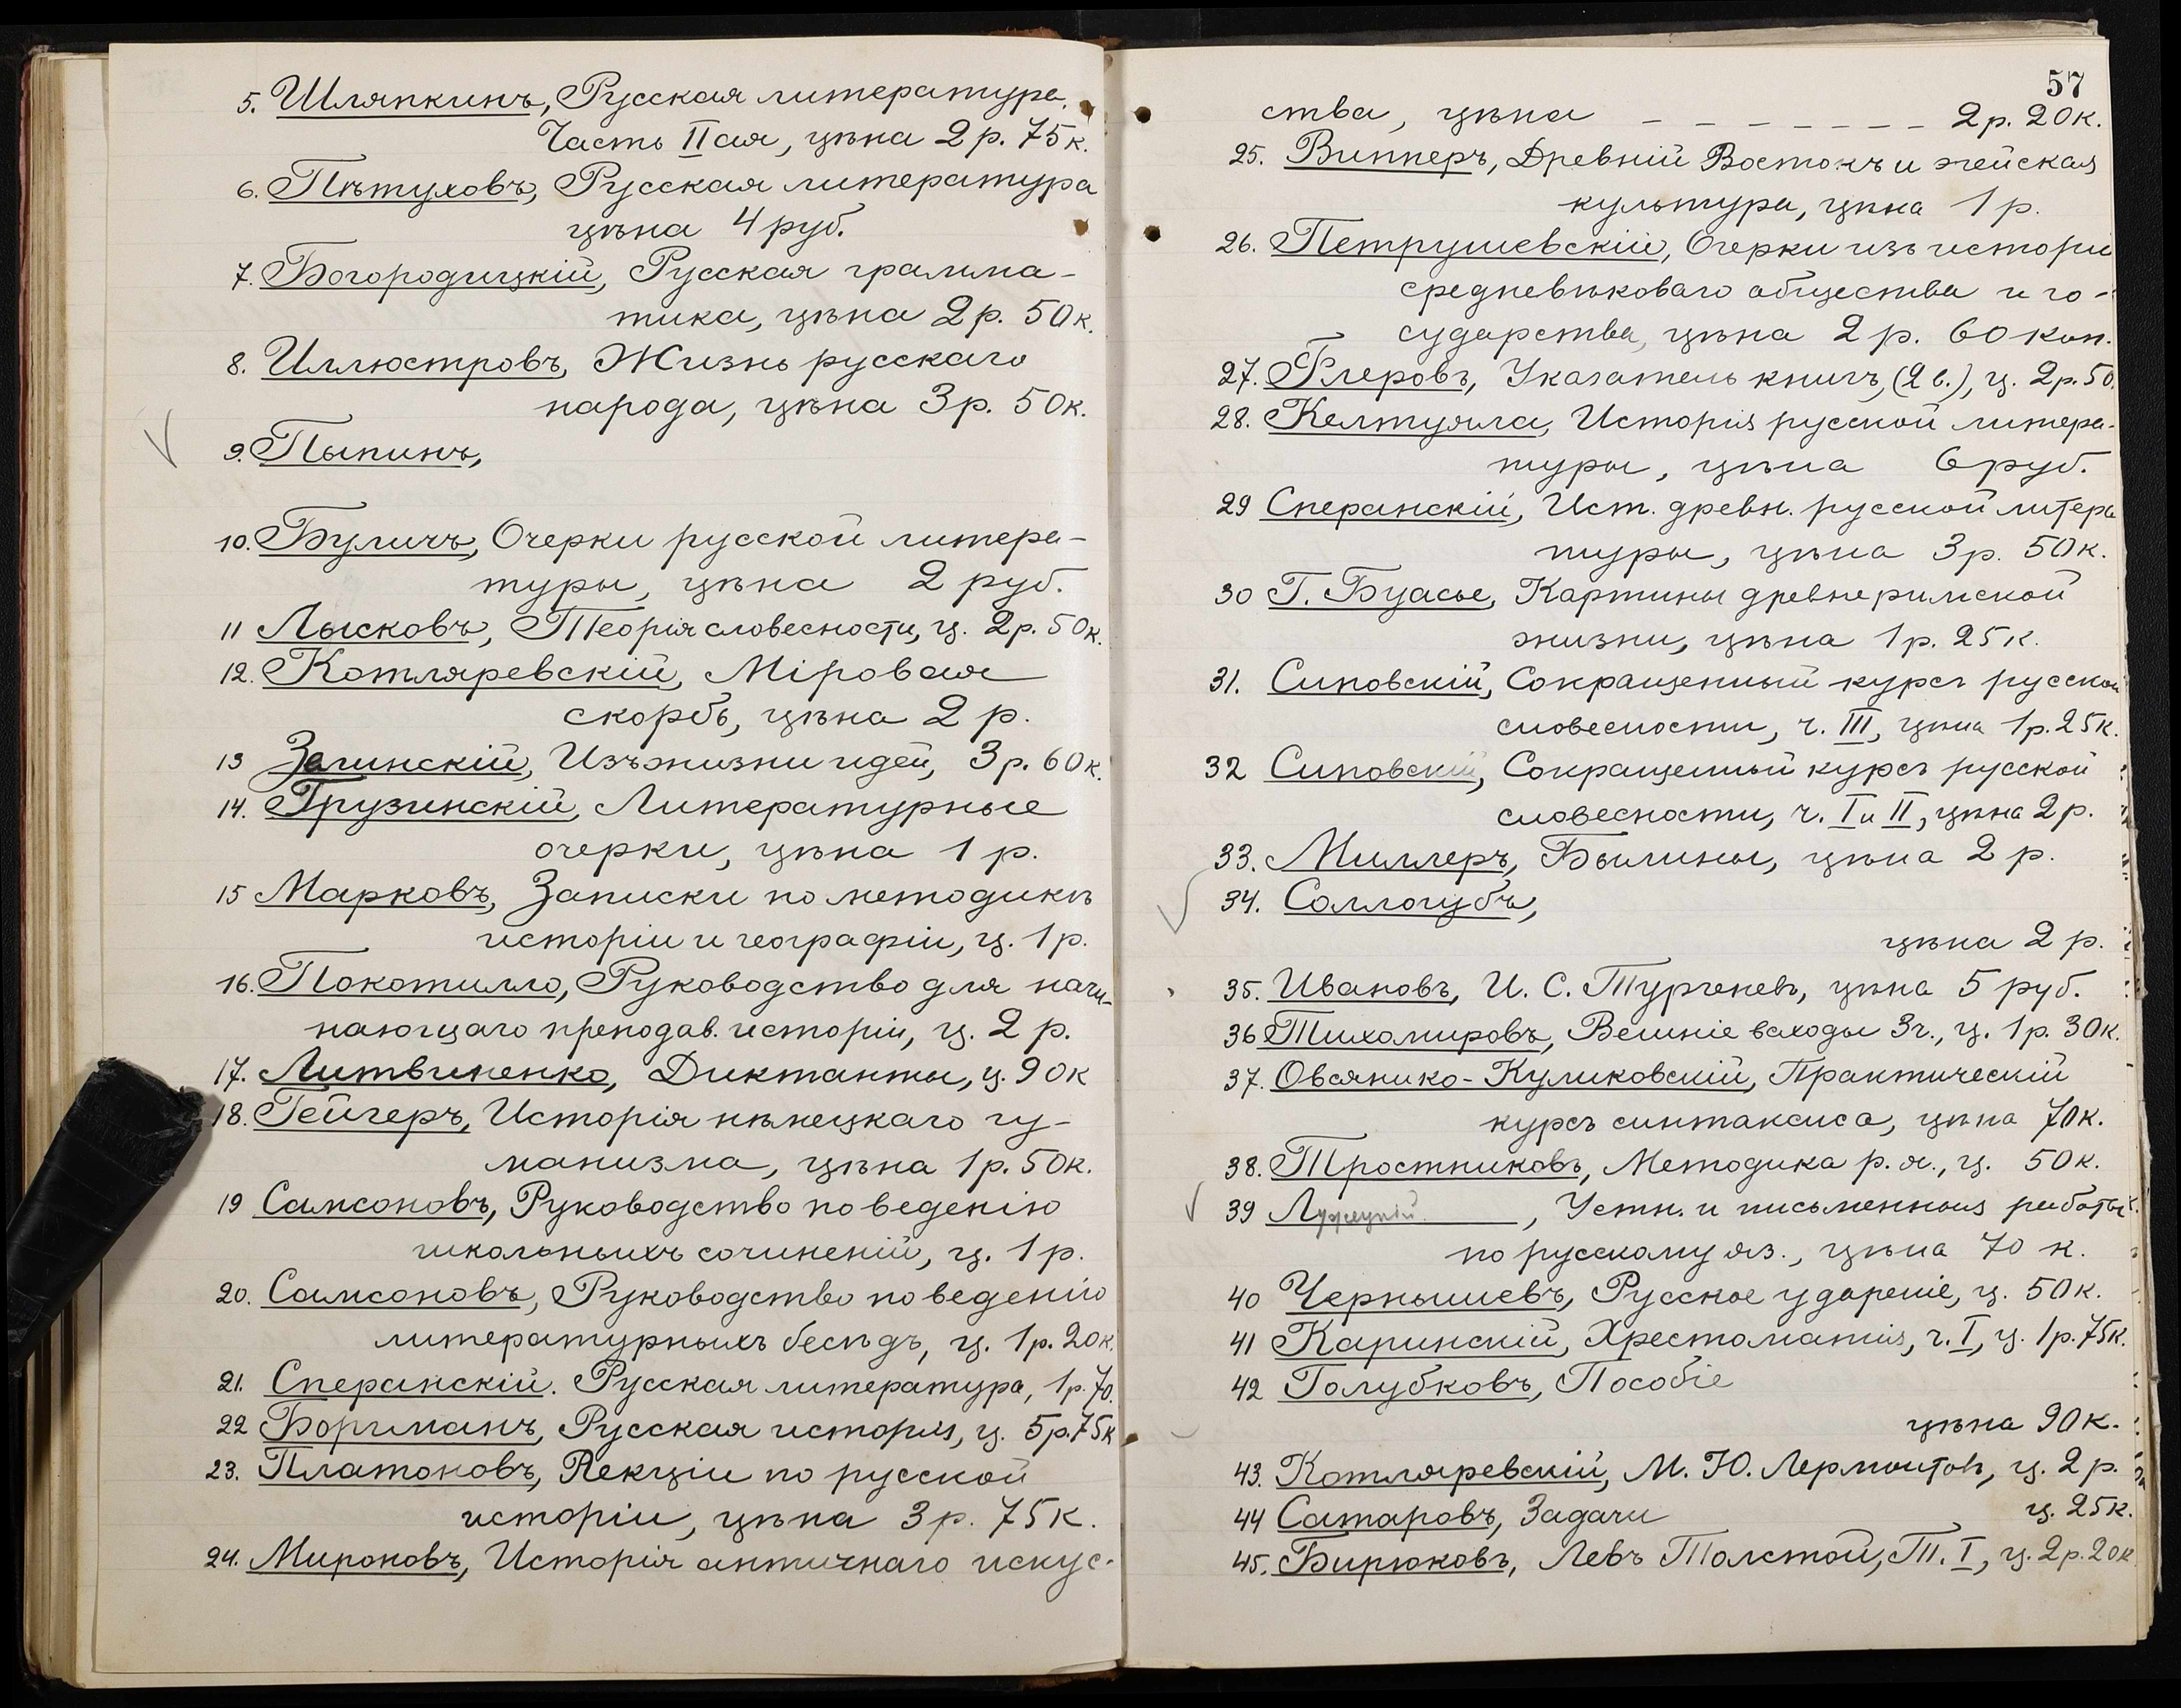 5. Шляпкинъ, Русская литература,
Часть IIая, цѣна 2 р. 75 к.
6. Пѣтуховъ, Русская литература
цѣна 4 руб.
7. Богородицкій, Русская грамма-
тика, цѣна 2 р. 50 к.
8. Иллюстровъ, Жизнь русскаго
народа, цѣна 3 р. 50 к.
9. Пыпинъ,
10. Буличъ, Очерки русской литера-
туры, цѣна 2 руб.
11 Лысковъ, Теорія словесности, ц. 2 р. 50 к.
12. Котляревскій, Міровая
скорбь, цѣна 2 р.
13 Зелинскій, Изъ жизни идей, 3 р. 60 к.
14. Грузинскій, Литературные
очерки, цѣна 1 р.
15 Марковъ, Записки по методикѣ
исторіи и географіи, ц. 1 р.
16. Покотилло, Руководство для начи-
нающаго преподав. исторіи, ц. 2 р.
17. Литвиненко, Диктанты, ц. 90 к
18. Гейгеръ, Исторія нѣмецкаго гу-
манизма, цѣна 1 р. 50 к.
19 Самсоновъ, Руководство по веденію
школьныхъ сочиненій, ц. 1 р.
20. Самсоновъ, Руководство по веденію
литературныхъ бесѣдъ, ц. 1 р. 20 к.
21. Сперанскій. Русская литература, 1 р. 70.
22 Боргманъ, Русская исторія, ц. 5 р. 75 к
23. Платоновъ, Лекціи по русской
исторіи, цѣна 3 р. 75 к.
24. Мироновъ, Исторія античнаго искус-
57
ства, цѣна – – – – – – – 2 р. 20 к.
25. Випперъ, Древній Востокъ и эгейская
культура, цѣна 1 р.
26. Петрушевскій, Очерки изъ исторіи
средневѣковаго общества и го-
сударства, цѣна 2 р. 60 коп.
27. Флеровъ, Указатель книгъ, (2 в.), ц. 2 р. 50.
28. Келтуяла, Исторія русской литера-
туры, цѣна 6 руб.
29 Сперанскій, Ист. древн. русской литера
туры, цѣна 3 р. 50 к.
30 Г. Буасье, Картины древнеримской
жизни, цѣна 1 р. 25 к.
31. Сиповскій, Сокращенный курсъ русской
словесности, ч. III, цѣна 1 р. 25 к.
32 Сиповскій, Сокращенный курсъ русской
словесности, ч. I и II, цѣна 2 р.
33. Миллеръ, Былины, цѣна 2 р.
34. Соллогубъ,
цѣна 2 р.
35. Ивановъ, И. С. Тургеневъ, цѣна 5 руб.
36 Тихомировъ, Вешніе всходы 3 г., ц. 1 р. 30 к.
37. Овсянико-Куликовскій, Практическій
курсъ синтаксиса, цѣна 70 к.
38. Тростниковъ, Методика р. я., ц. 50 к.
39 , Устн. и письменныя работы
по русскому яз., цѣна 70 к.
40 Чернышевъ, Русское удареніе, ц. 50 к.
41 Каринскій, Хрестоматія, ч. I, ц. 1 р. 75 к.
42 Голубковъ, Пособіе
цѣна 90 к.
43. Котляревскій, М. Ю. Лермонтовъ, ц. 2 р.
44 Сатаровъ, Задачи ц. 25 к.
45. Бирюковъ, Левъ Толстой, Т. I, ц. 2 р. 20 к